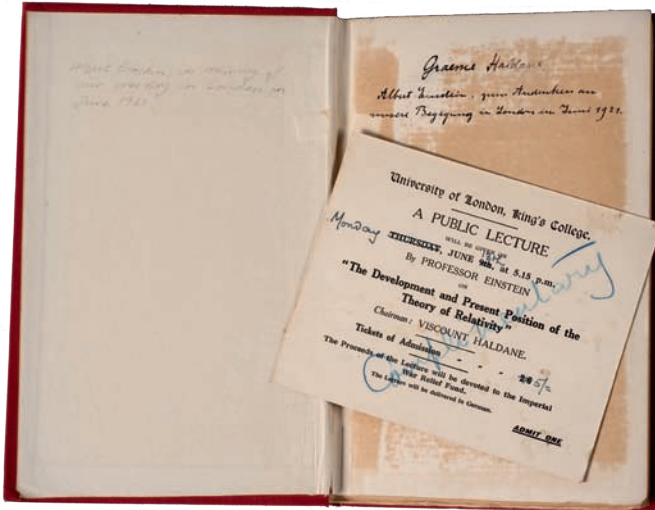 Albert Einstein, in memory of
our meeting in London in
June 1921
Graeme Haldane
Albert Einstein, zum Andenken an
unsere Begegnung in London in Juni 1921.
University of London, King's College.
A PUBLIC LECTURE
WILL BE GIVEN ON
Monday THURSDAY, JUNE 9th, at 5.15 p.m.
By PROFESSOR EINSTEIN
ON
"The Development and Present Position of the
Theory of Relativity"
Chairman: VISCOUNT HALDANE.
Tickets of Admission - - - 5/-
The Proceeds of the Lecture will be devoted to the Imperial
War Relief Fund.
The Lecture will be delivered in German.
ADMIT ONE
Complimentary